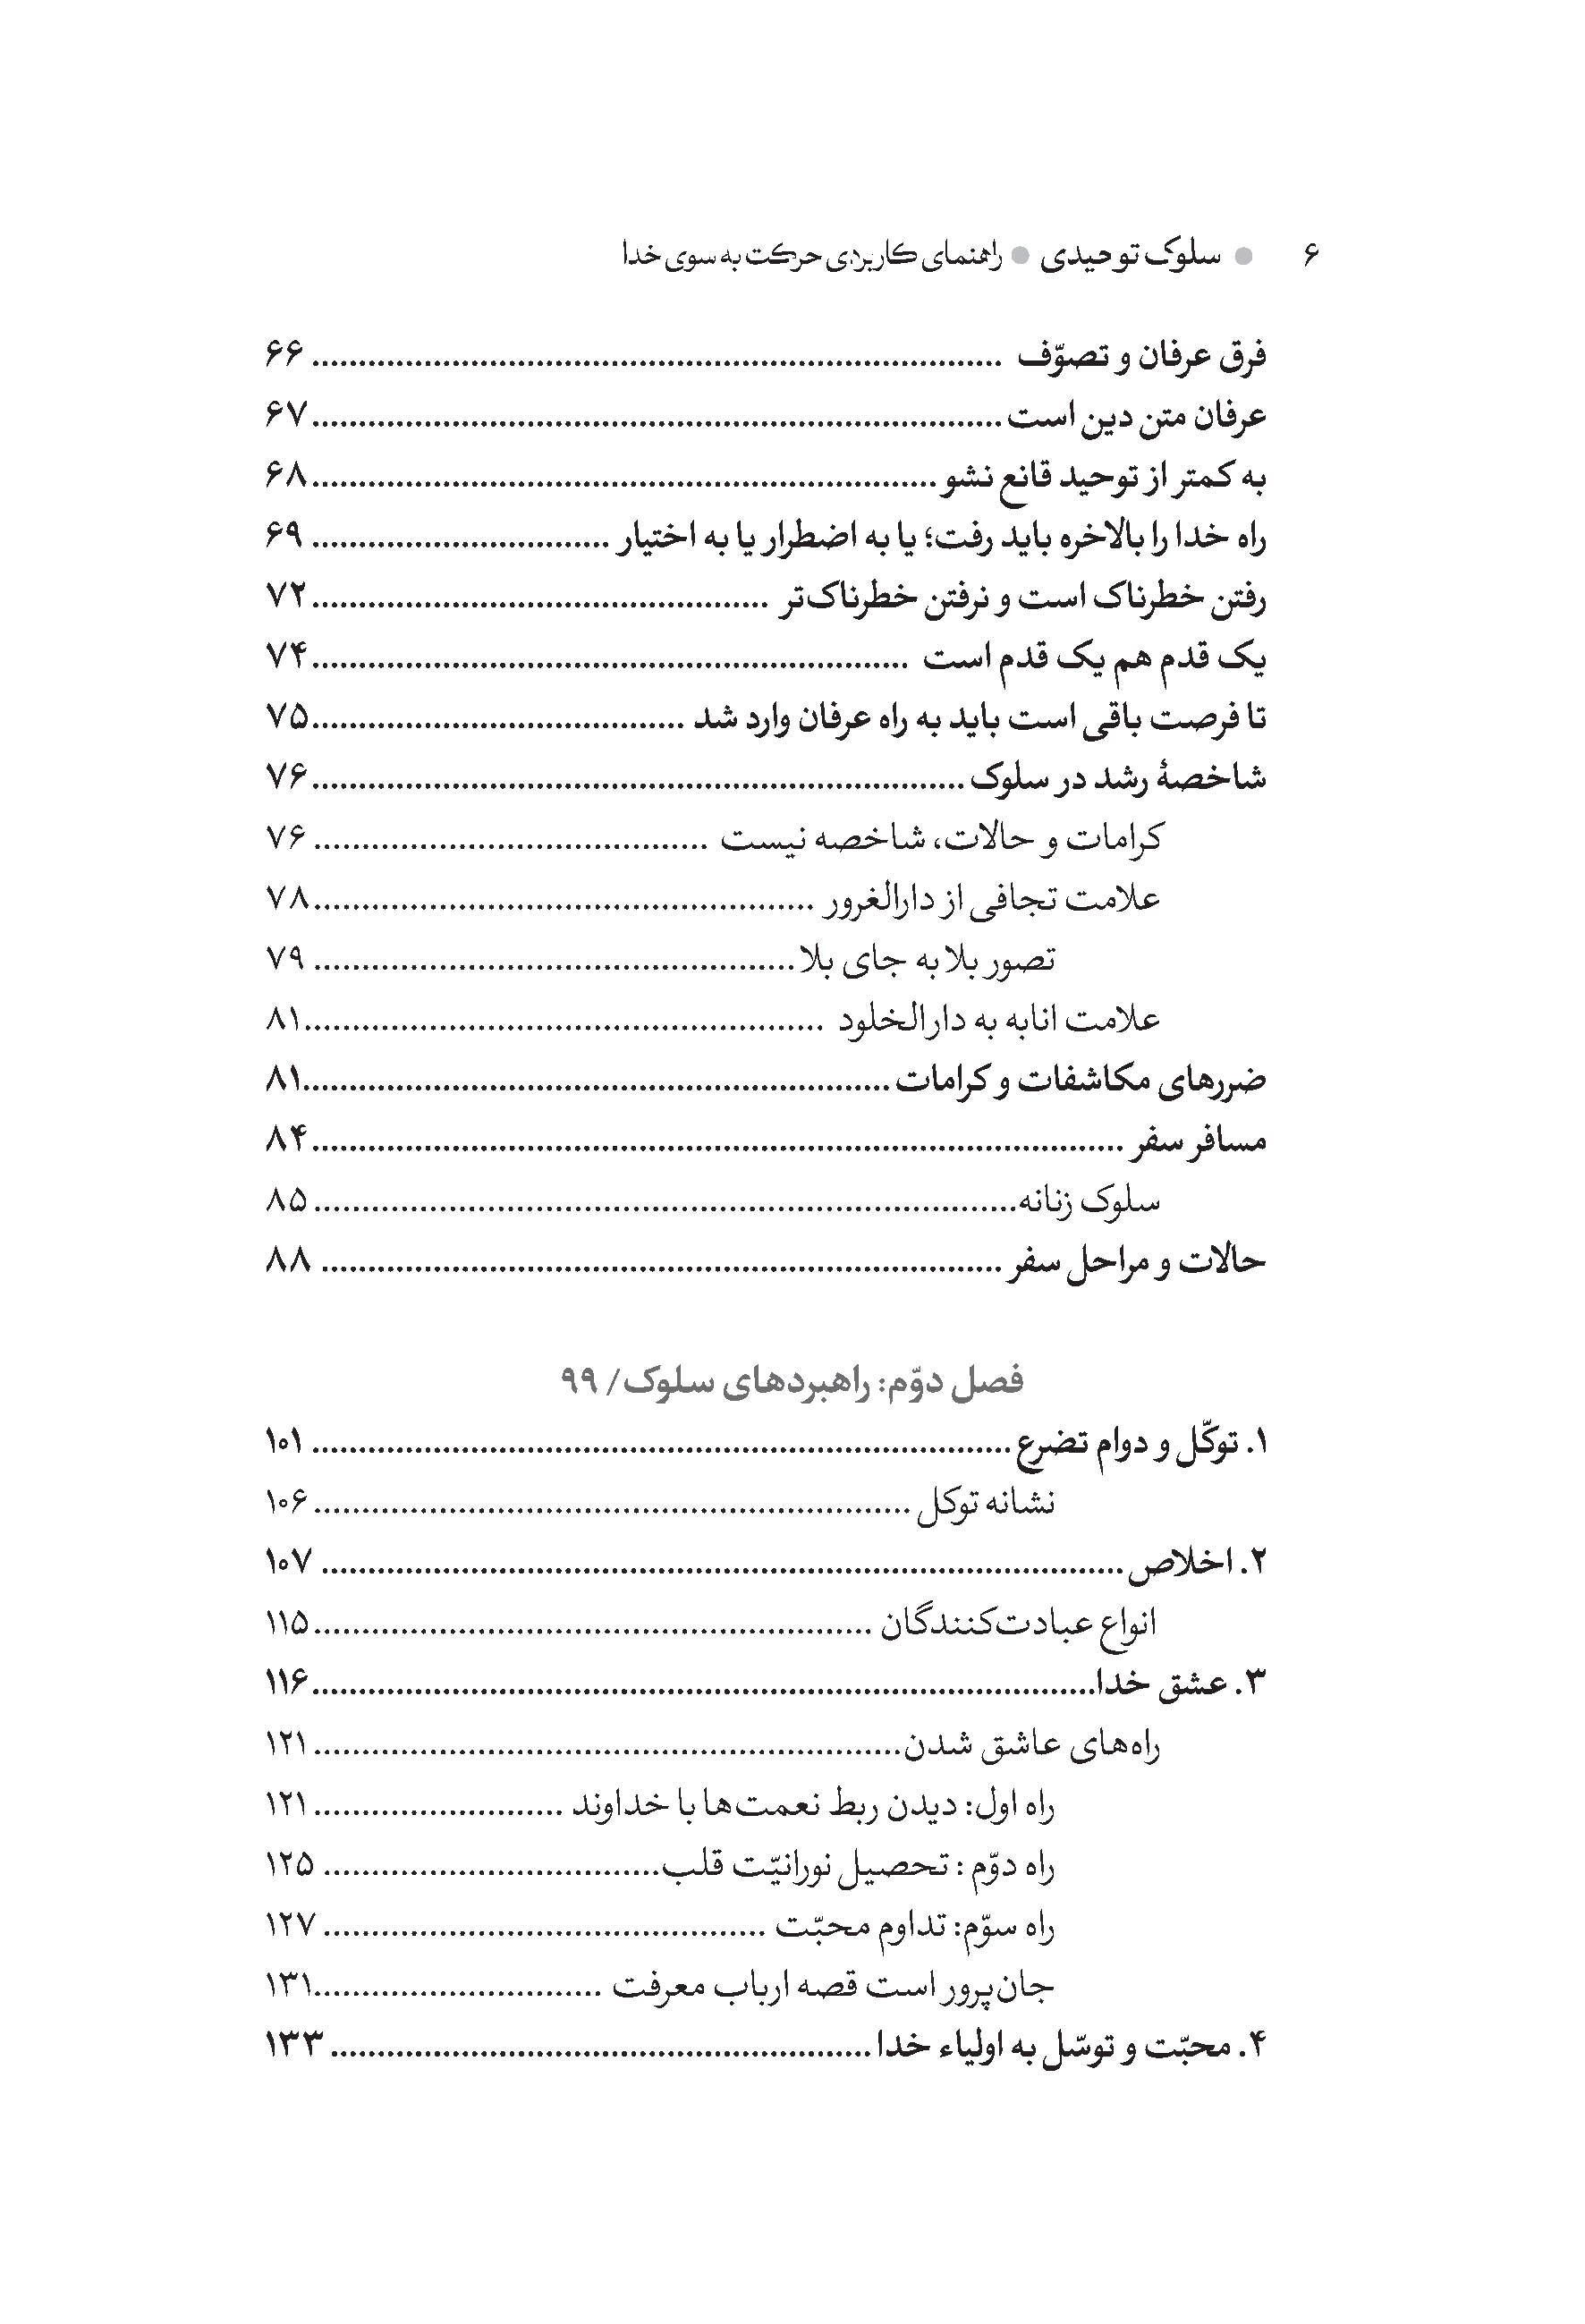 ۶ ● سلوک توحیدی ● راهنمای کاربردی حرکت به سوی خدا
فرق عرفان و تصوّف ........ ۶۶
عرفان متن دین است ........ ۶۷
به کمتر از توحید قانع نشو ........ ۶۸
راه خدا را بالاخره باید رفت؛ یا به اضطرار یا به اختیار ........ ۶۹
رفتن خطرناک است و نرفتن خطرناک‌تر ........ ۷۲
یک قدم هم یک قدم است ........ ۷۴
تا فرصت باقی است باید به راه عرفان وارد شد ........ ۷۵
شاخصهٔ رشد در سلوک ........ ۷۶
کرامات و حالات، شاخصه نیست ........ ۷۶
علامت تجافی از دارالغرور ........ ۷۸
تصور بلا به جای بلا ........ ۷۹
علامت انابه به دارالخلود ........ ۸۱
ضررهای مکاشفات و کرامات ........ ۸۱
مسافر سفر ........ ۸۴
سلوک زنانه ........ ۸۵
حالات و مراحل سفر ........ ۸۸
فصل دوّم: راهبردهای سلوک/ ۹۹
۱. توکّل و دوام تضرع ........ ۱۰۱
نشانه توکل ........ ۱۰۶
۲. اخلاص ........ ۱۰۷
انواع عبادت‌کنندگان ........ ۱۱۵
۳. عشق خدا ........ ۱۱۶
راه‌های عاشق شدن ........ ۱۲۱
راه اول: دیدن ربط نعمت‌ها با خداوند ........ ۱۲۱
راه دوّم : تحصیل نورانیّت قلب ........ ۱۲۵
راه سوّم: تداوم محبّت ........ ۱۲۷
جان‌پرور است قصه ارباب معرفت ........ ۱۳۱
۴. محبّت و توسّل به اولیاء خدا ........ ۱۳۳